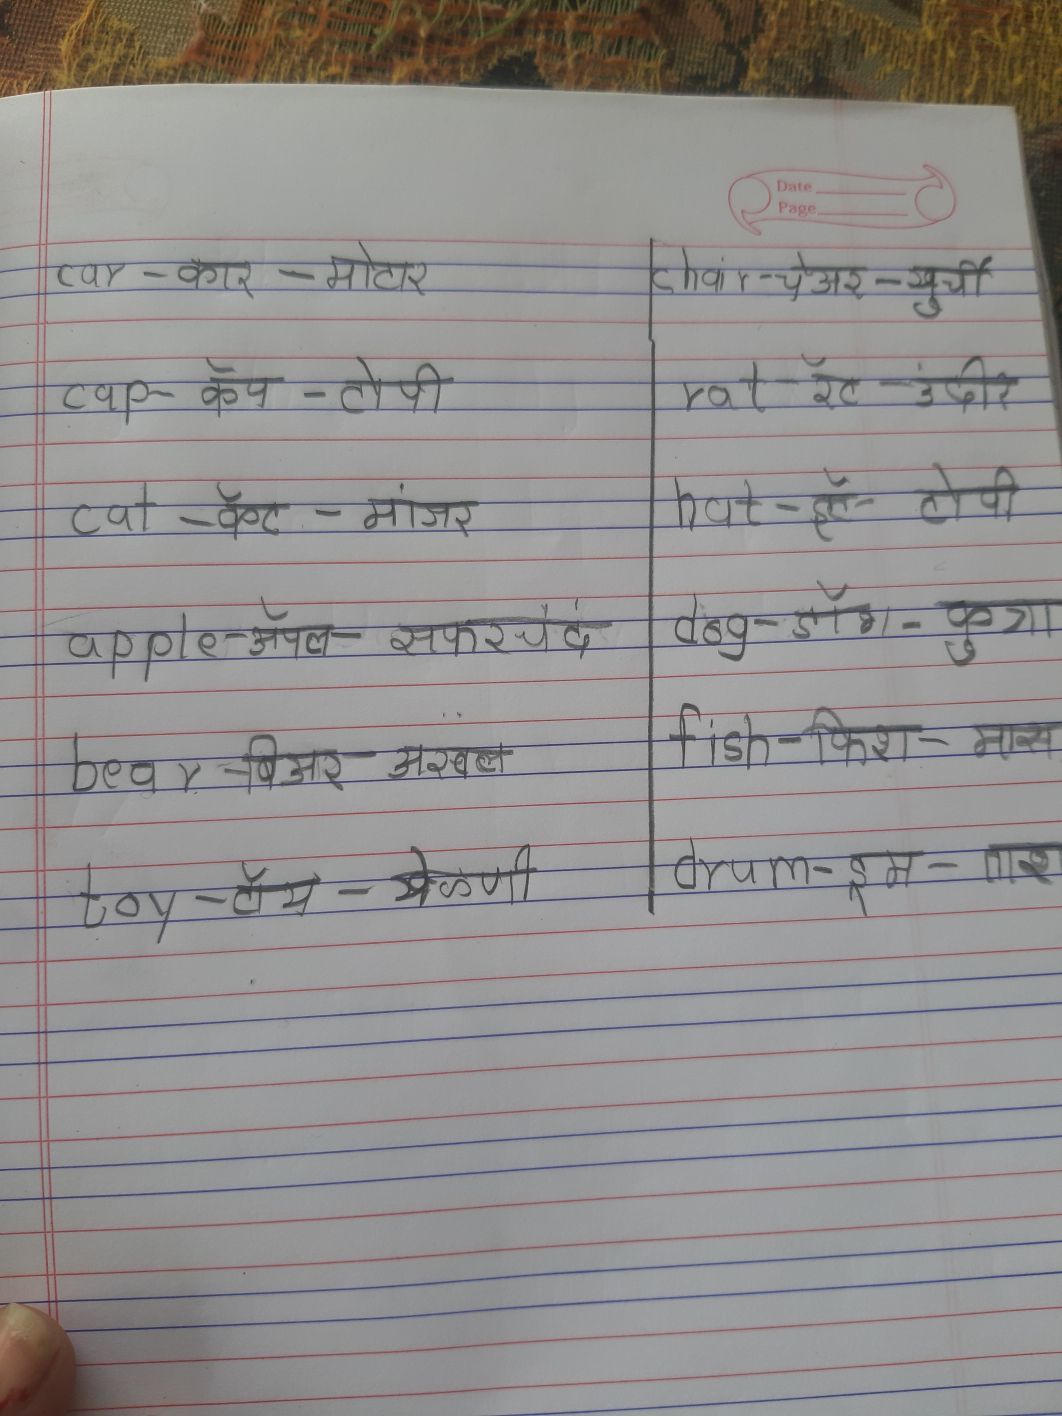 Date
Page
car - कार - मोटार
cap - कॅप - टोपी
cat - कॅट - मांजर
apple - ॲपल - सफरचंद
bear - बिअर - अस्वल
toy - टॉय - खेळणी
chair - चेअर - खुर्ची
rat - रॅट - उंदीर
hat - हॅट - टोपी
dog - डॉग - कुत्रा
fish - फिश - मास
drum - ड्रम -